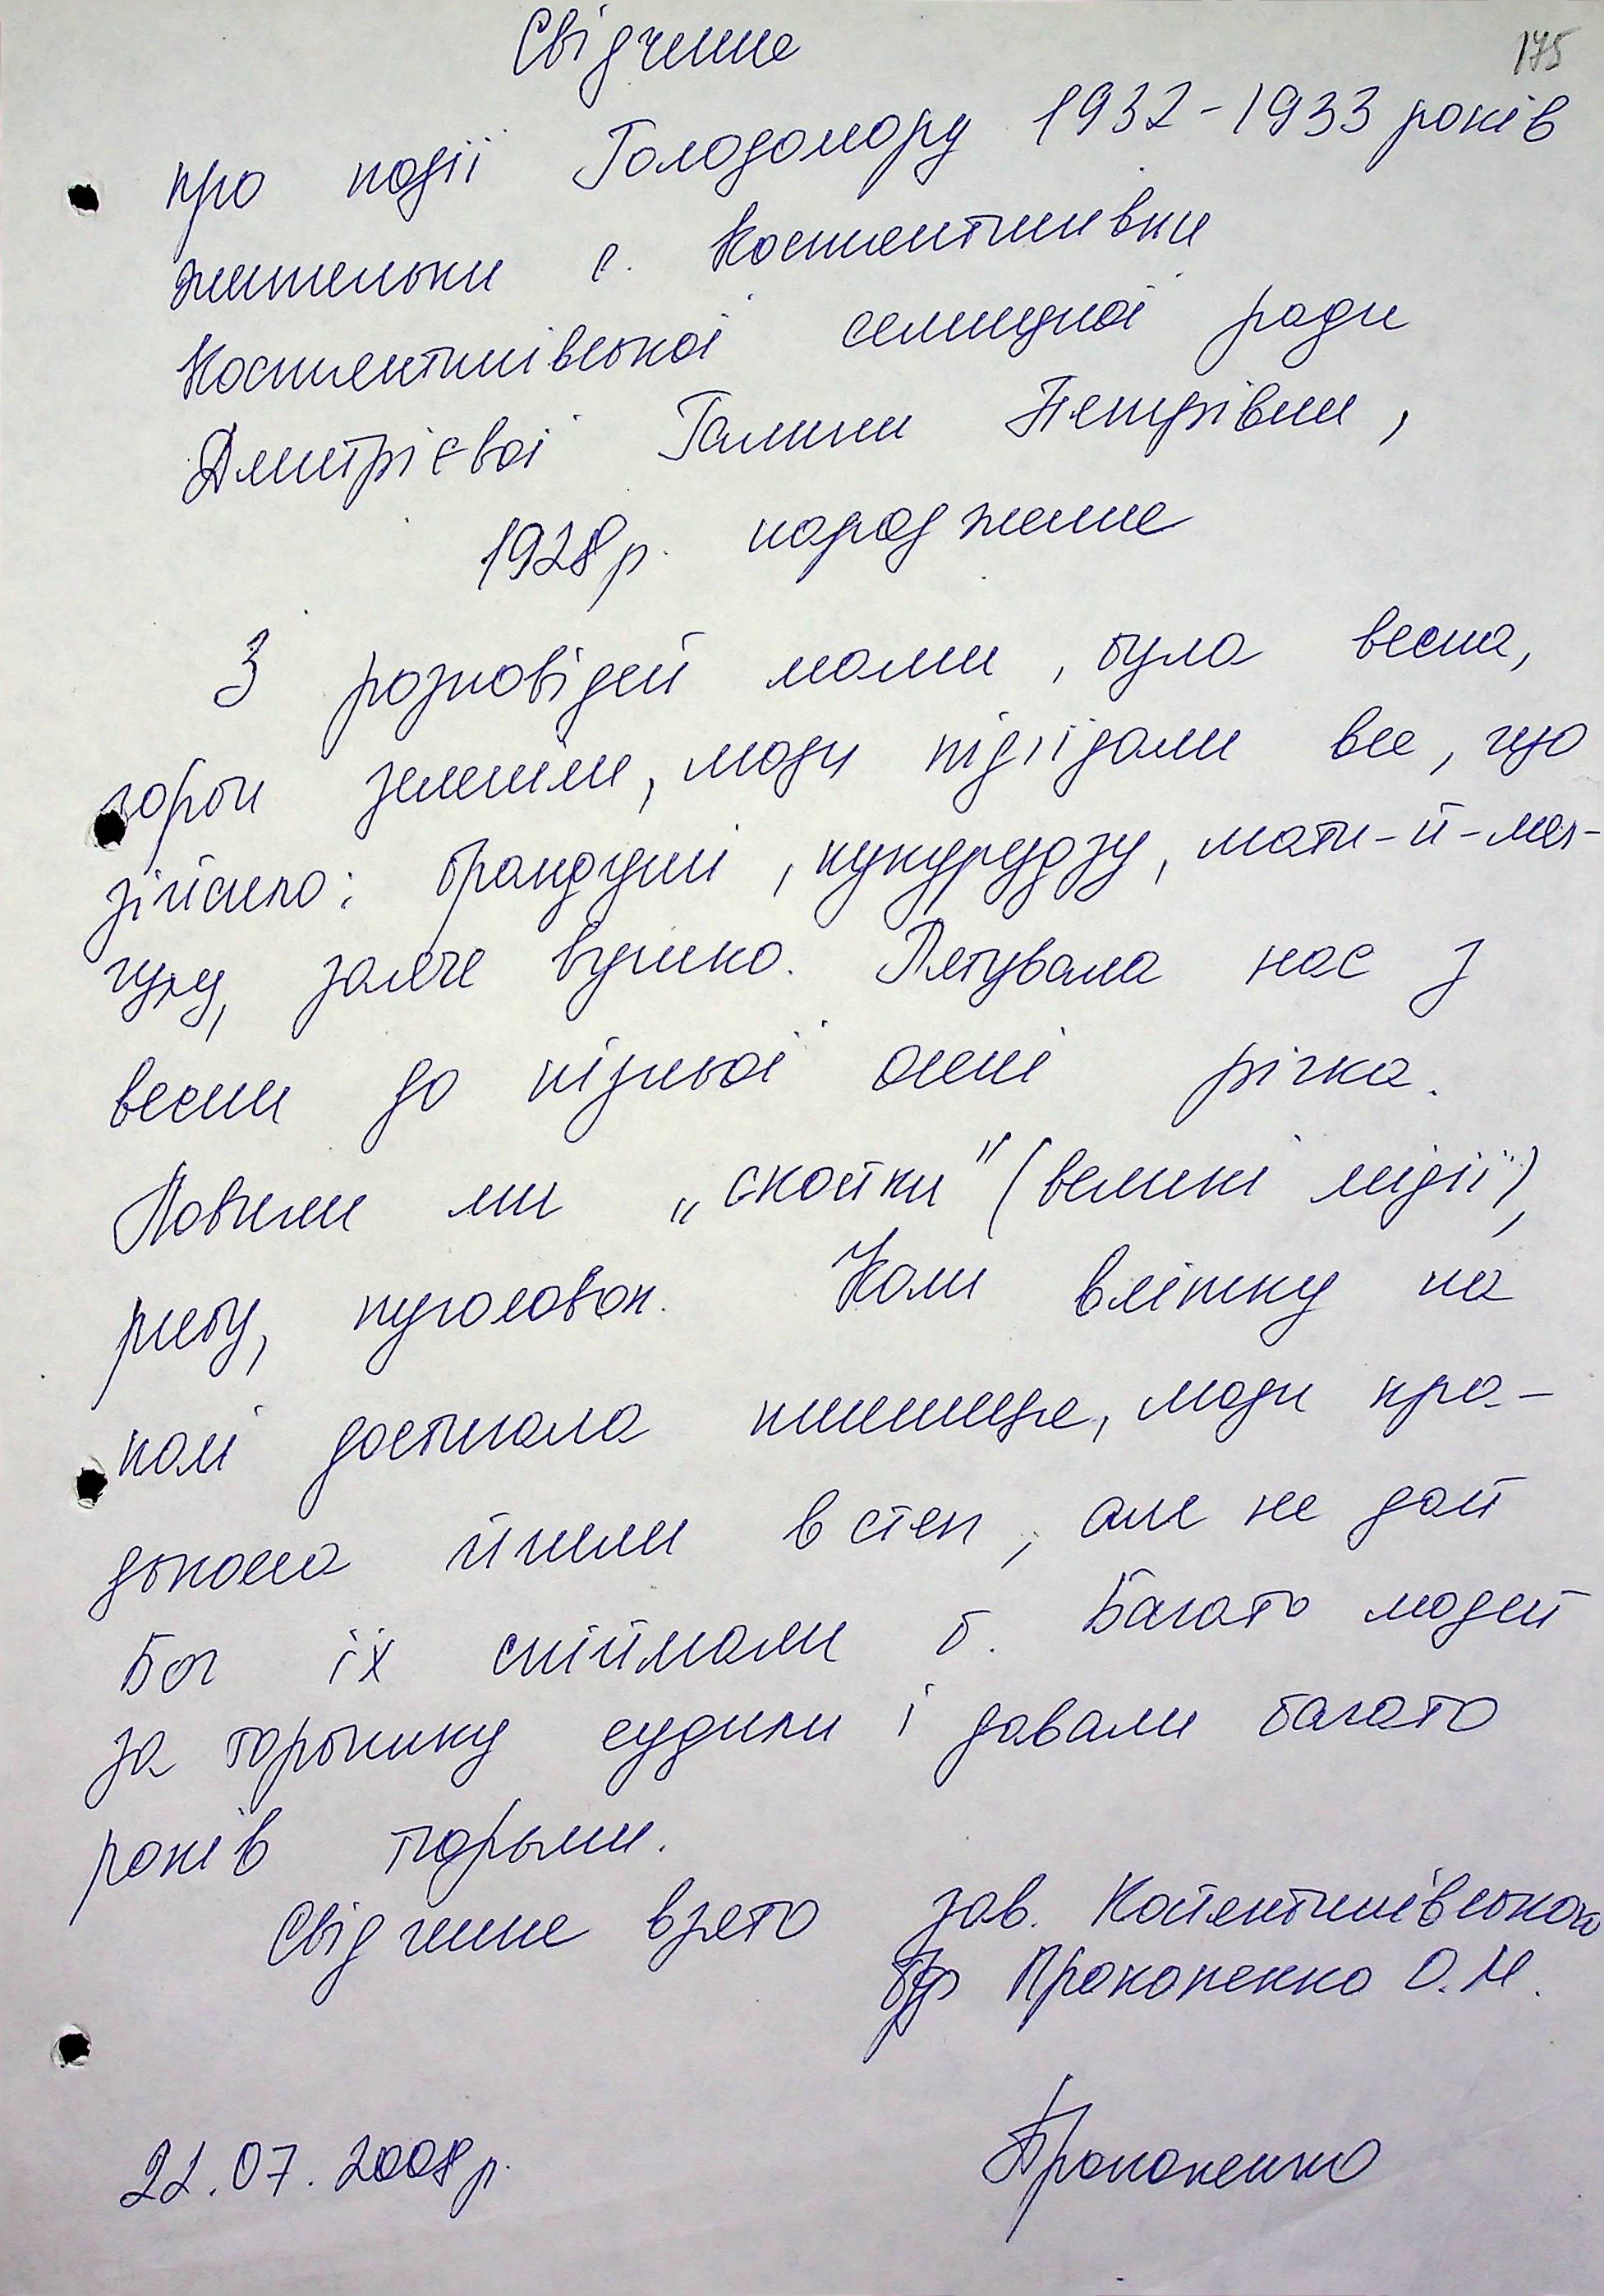 175
Свідчення
про події Голодомору 1932-1933 років
жительки с. Костянтинівки
Костянтинівської селищної ради
Дмитрієвої Галини Петрівни,
1928 р. народження
З розповідей мами, була весна,
горби зеленіли, люди підїідали все, що
зійшло: брандуші, кукурудзу, мати-й-мa-
чуху, заяче вушко. Рятувала нас з
весни до пізньої осені річка.
Ловили ми „скойки" (великі мідії),
рибу, пуголовок. Коли влітку на
полі достигала пшениця, люди кра-
дькома йшли в степ, але не дай
Бог їх спіймали б. Багато людей
за торбинку судили і давали багато
років тюрьми.
Свідчення взято зав. Костянтинівського
Прокопенко О.М.
22.07.2008 р.
Прокопенко